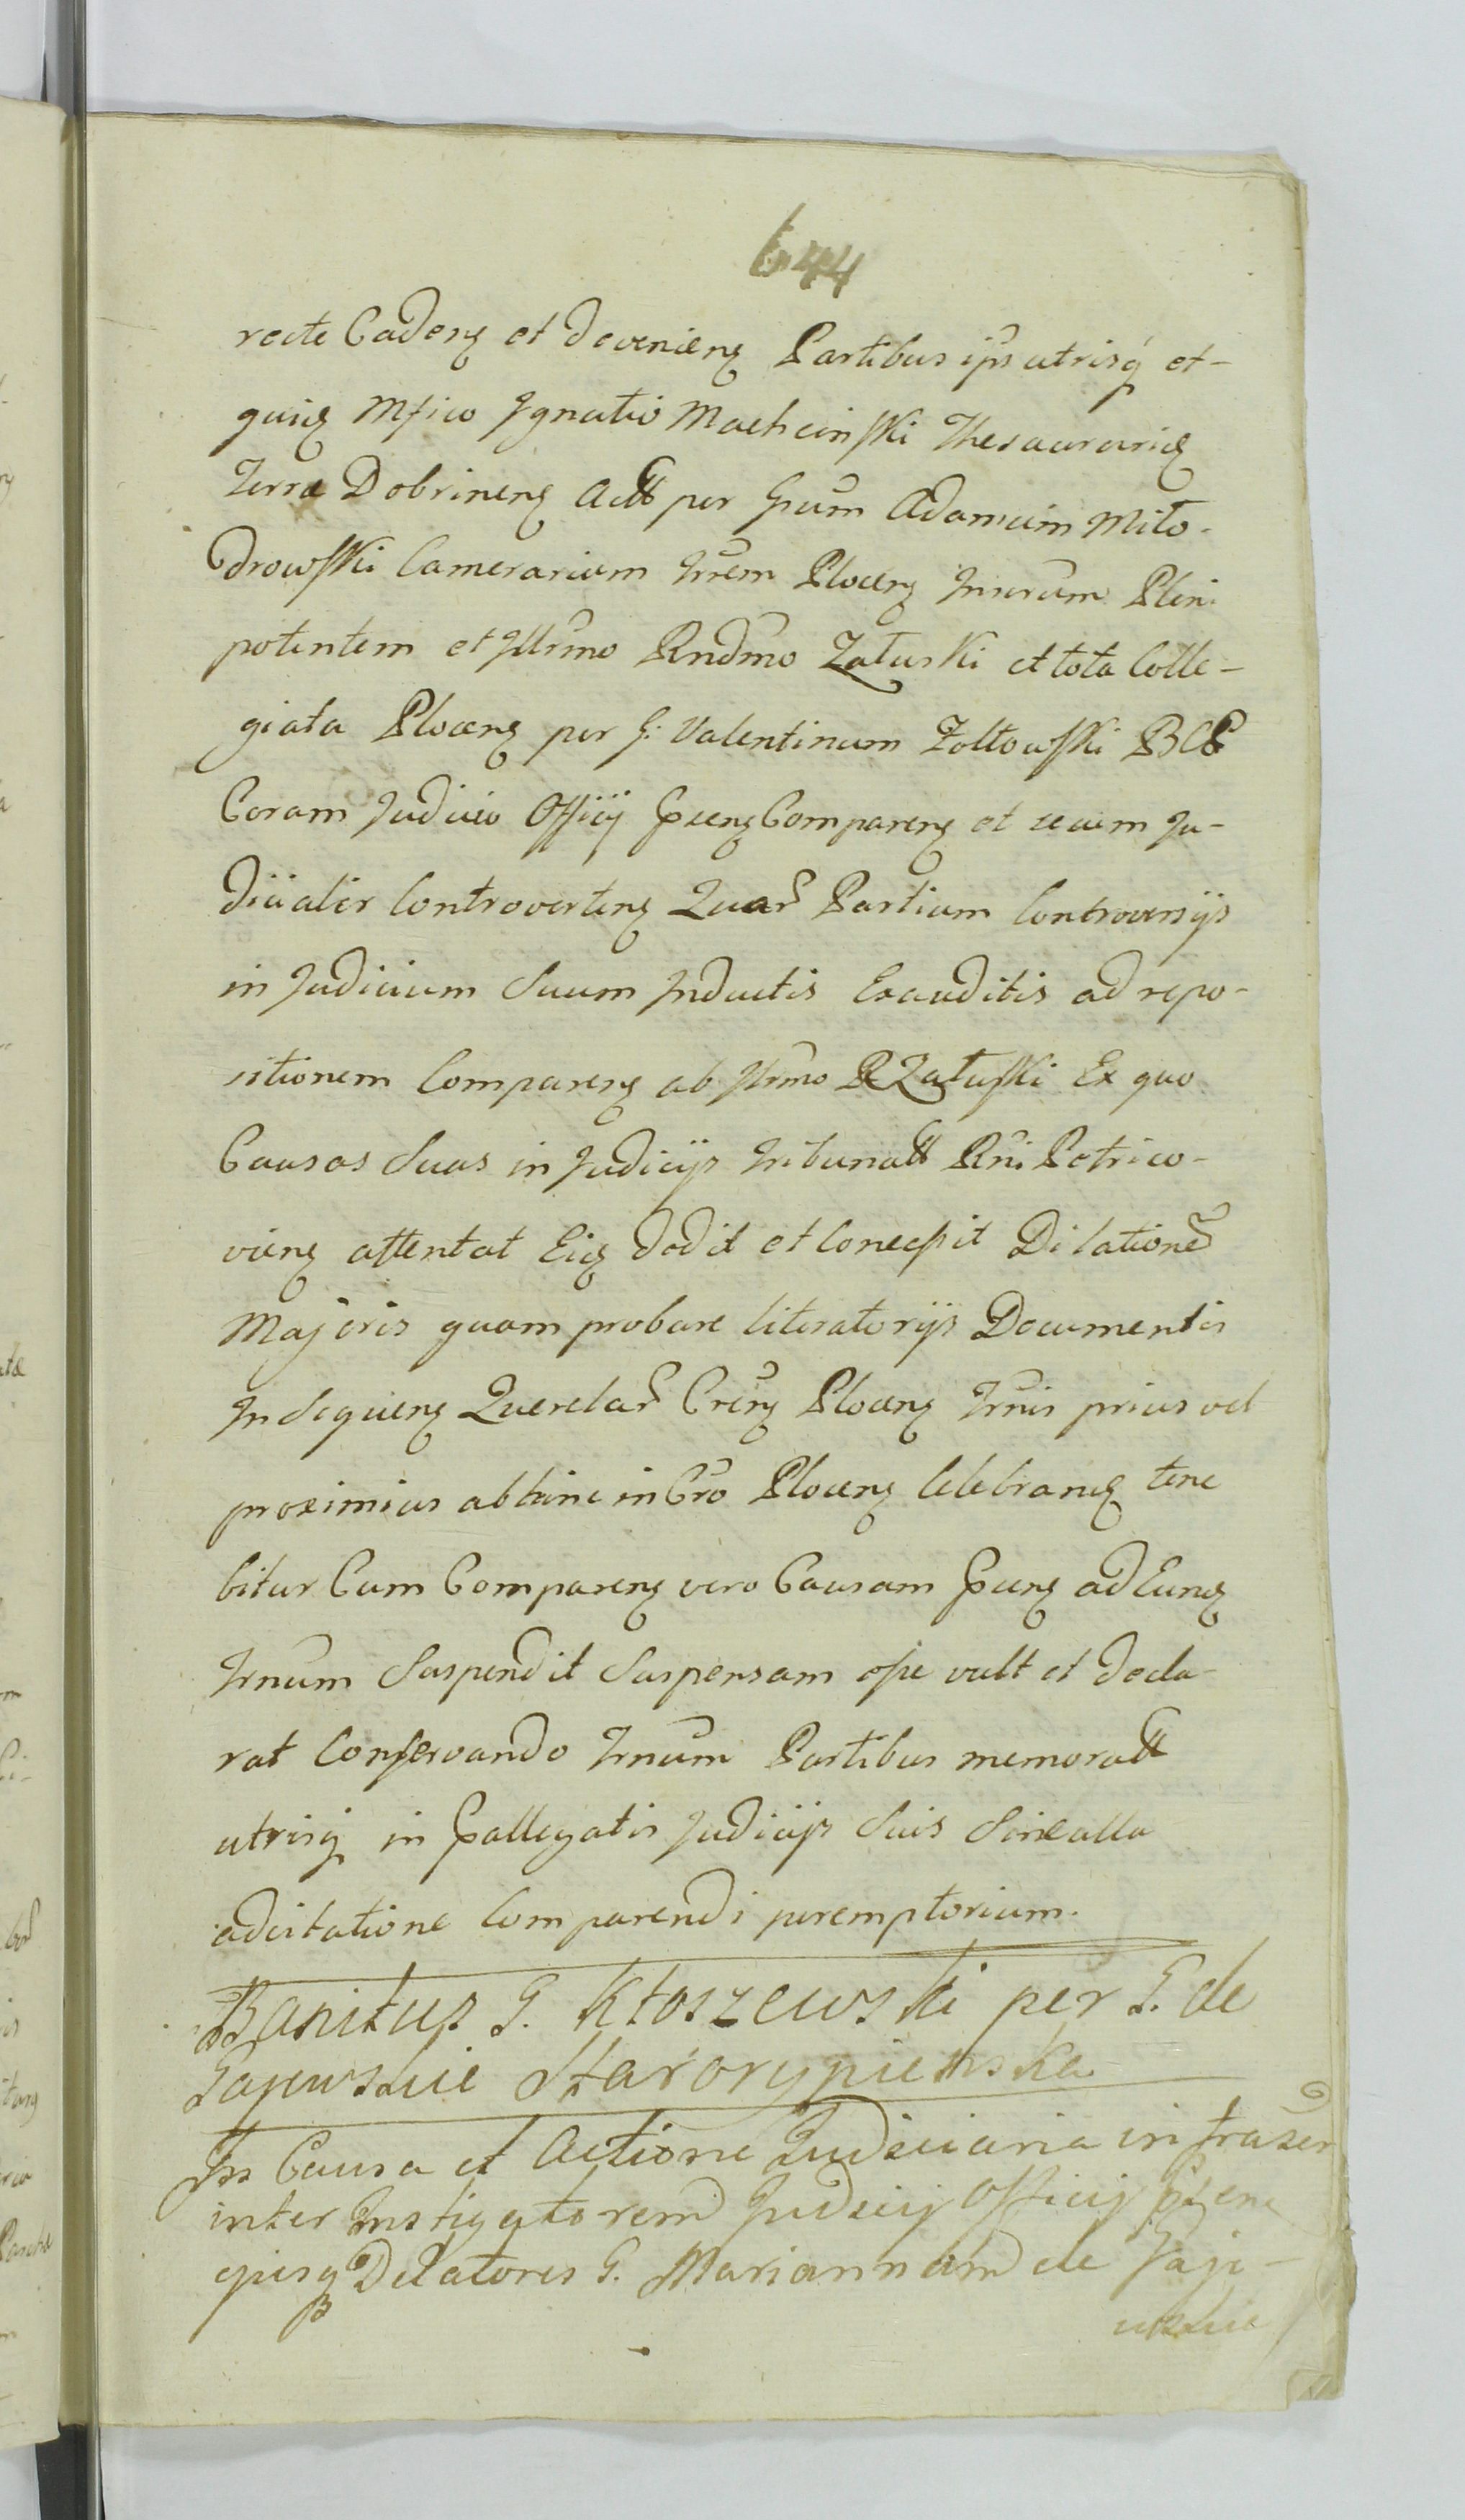 644
recte Cadeng et deveniens Partibus ips utrisq et-
quid Mfico Ignatio Machcinski Thesaurarid
Terra Dobrineng Actt per Gsum Adamum Miło-
drowski Camerarium Trrem Ploceng Juratum Pleni
potentem et Illrmo Rndmo Załuski et tota Colle-
giata Ploceng per G: Valentinum Zołtowski BCP
Coram Judicio Officij Gseng Compareng et secum Ju-
dicialir Controverteng Quar Partium Controversijs
in Judicium Suum Inductis Exauditis ad repo-
sitionem Compareng ab Illrmo R Załuski Ex quo
Causas Suas in Judicijs Tribunatt Rni Petrico-
vieng attentat Eid dedit et Concessit Dilatione
Majoris quam probare literatorijs Documentis
In Sequeng Querelar Creng Ploceng Trnis prius vel
proximius abhinc in Cro Ploceng Celebrand tene
bitur Cum Compareng vero Causam Gseng ad Eund
Trnum Suspendit Suspensam esse vult et decla-
rat Conservando Trnum Partibus memoratt
utrisq in Gallegatis Judicijs Suis Sine alla
adcitatione Comparendi peremptorium.
Banitus G. Kłoszewski per G. de
Gajewskie Starorypienska
In Causa et Actione Judiciaria infraser
inter Instigatorem Judicij Officij Gseng
ejusq Delatores G. Mariannam de Gaje-
wskie